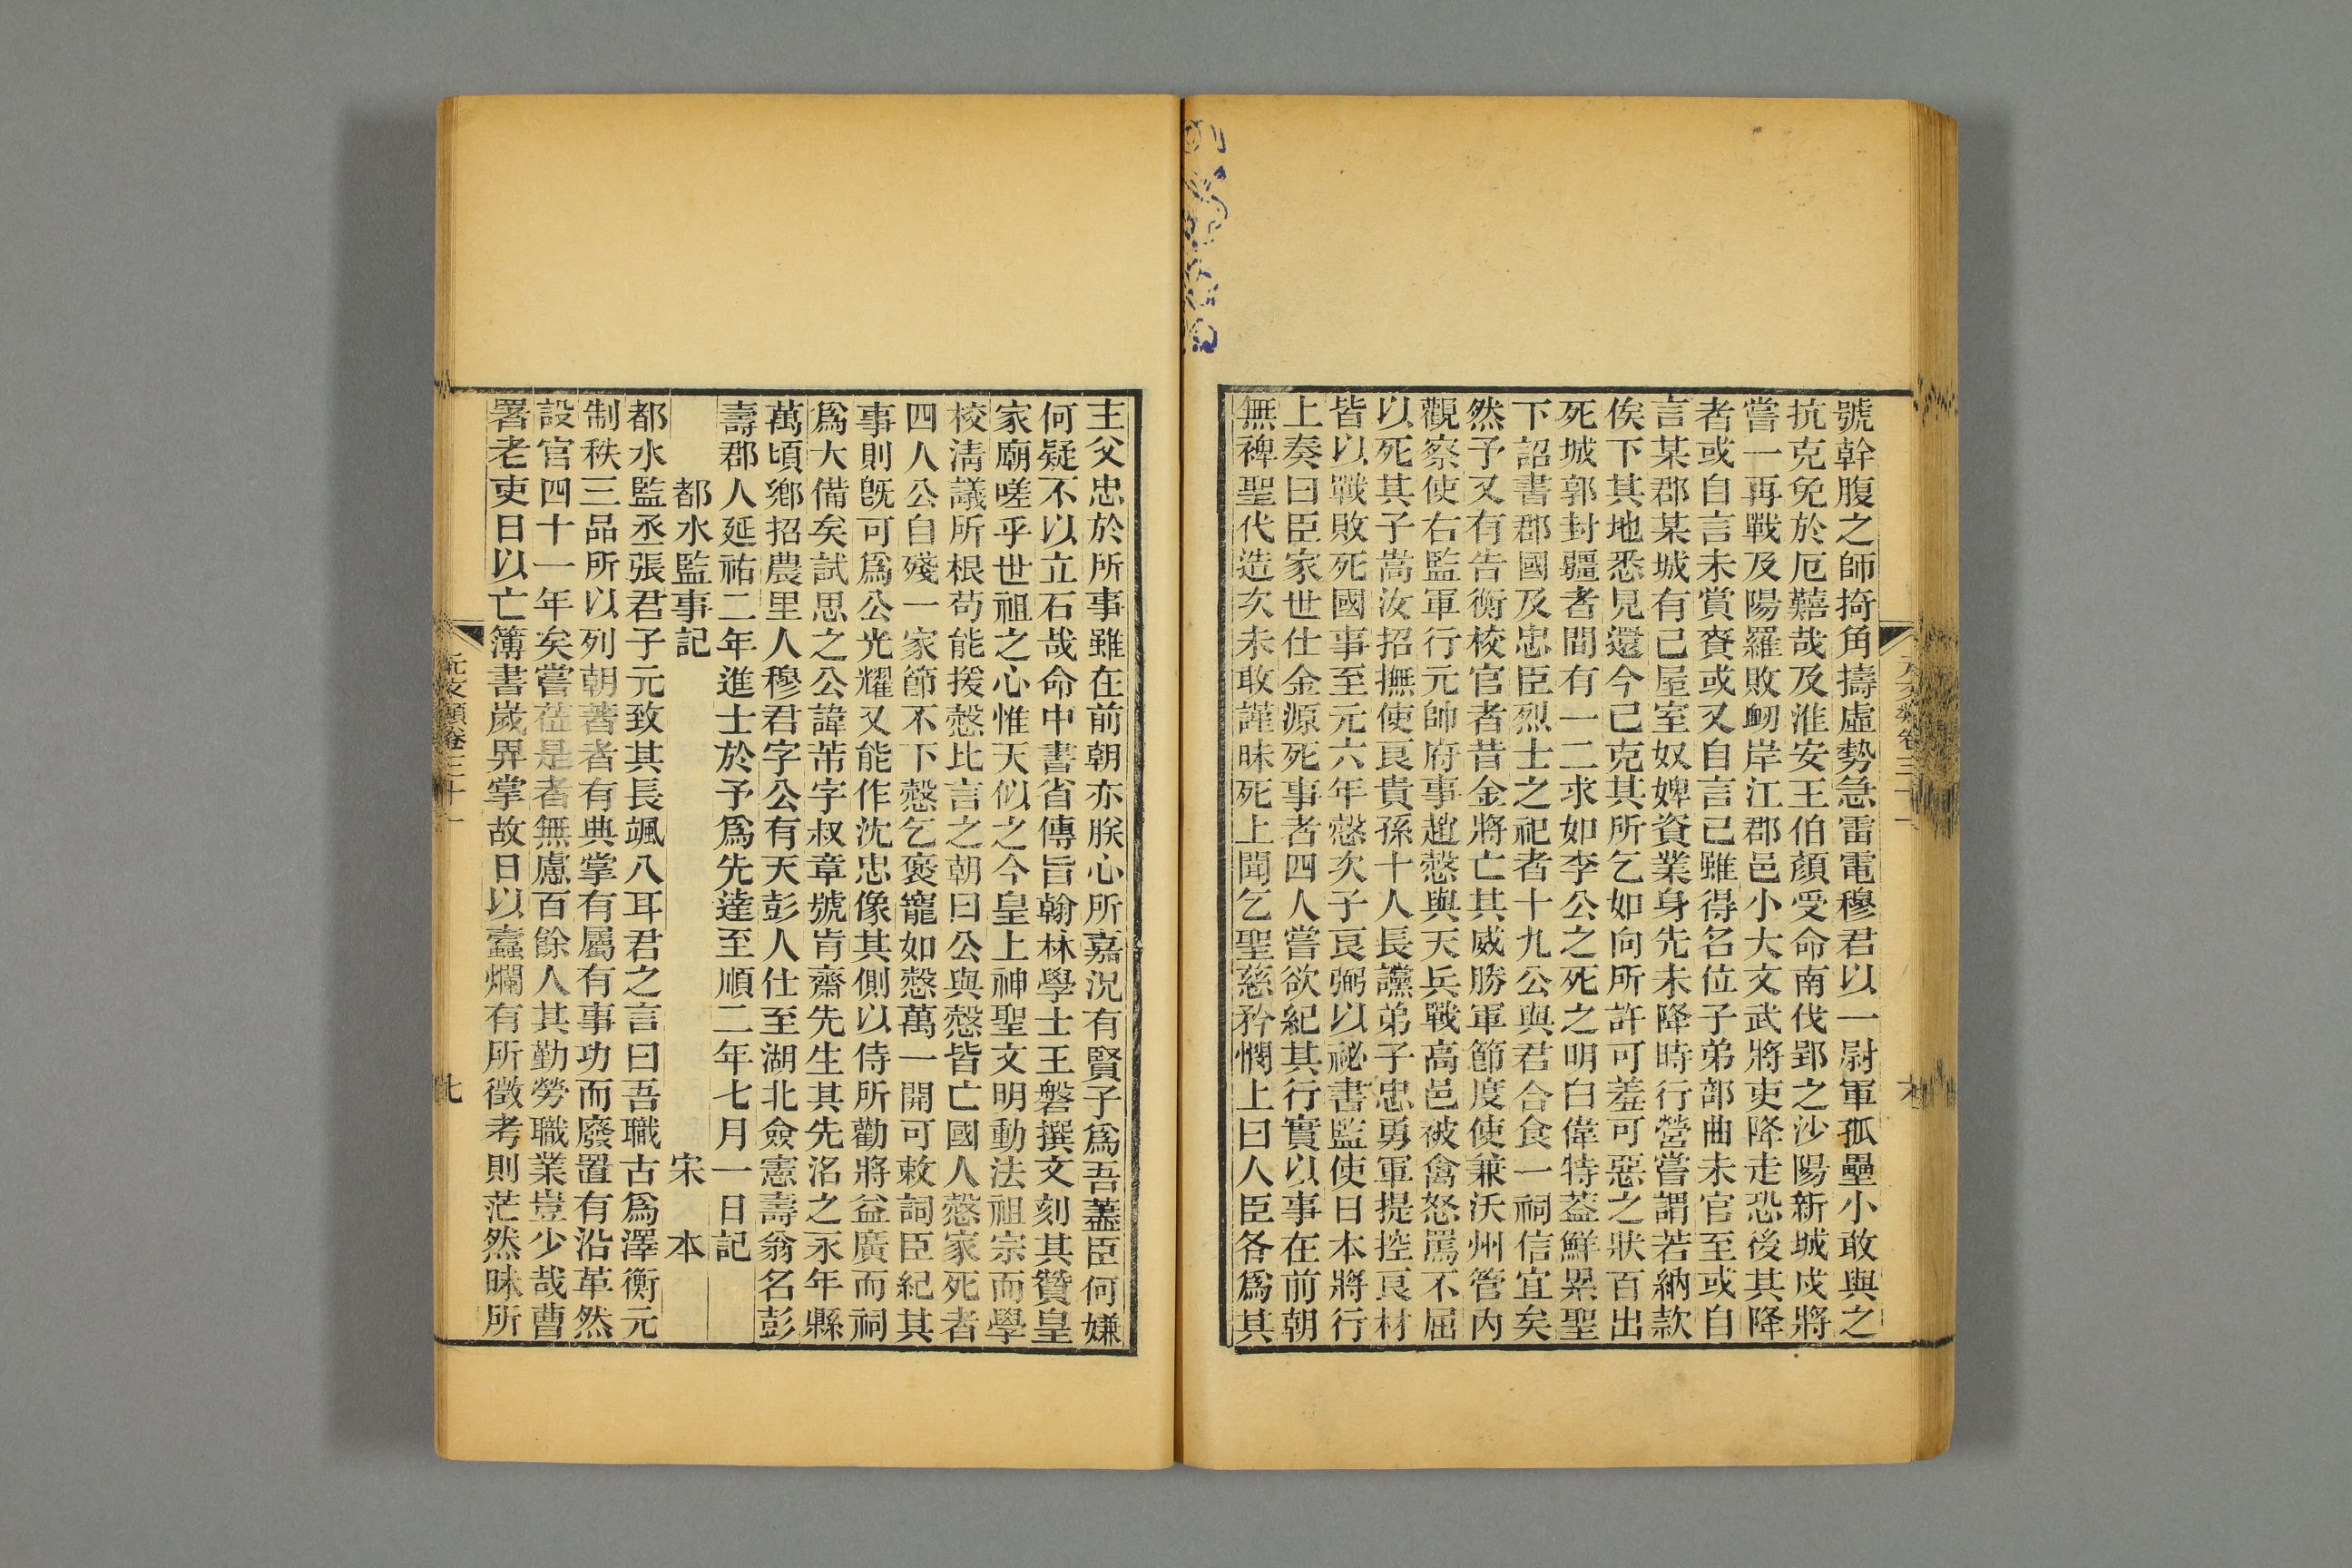 號幹腹之師掎角擣虛勢急雷電穆君以一尉軍孤壘小敢與之
抗克免於厄囏哉及淮安王伯顏受命南伐郢之沙陽新城戍將
嘗一再戰及陽羅敗衂岸江郡邑小大文武將吏降走恐後其降
者或自言未賞賚或又自言己雖得名位子弟部曲未官至或自
言某郡某城有己屋室奴婢資業身先未降時行營嘗謂若納款
俟下其地悉見還今已克其所乞如向所許可羞可惡之狀百出
死城郭封疆者間有一二求如李公之死之明白偉特葢鮮累聖
下詔書郡國及忠臣烈士之祀者十九公與君合食一祠信宜矣
然予又有告衡校官者昔金將亡其威勝軍節度使兼沃州管內
觀察使右監軍行元帥府事趙慤與天兵戰高邑被禽怒罵不屈
以死其子嵩汝招撫使良貴孫十人長讜弟子忠勇軍提控良材
皆以戰敗死國事至元六年慤次子良弼以祕書監使日本將行
上奏曰臣家世仕金源死事者四人嘗欲紀其行實以事在前朝
無裨聖代造次未敢謹昧死上聞乞聖慈矜憫上曰人臣各爲其
主父忠於所事雖在前朝亦朕心所嘉況有賢子爲吾藎臣何嫌
何疑不以立石哉命中書省傳旨翰林學士王磐撰文刻其贊皇
家廟嗟乎世祖之心惟天似之今皇上神聖文明動法祖宗而學
校淸議所根茍能援慤比言之朝曰公與慤皆亡國人慤家死者
四人公自殘一家節不下慤乞褒寵如慤萬一開可敕詞臣紀其
事則旣可爲公光耀又能作沈忠像其側以侍所勸將益廣而祠
爲大備矣試思之公諱芾字叔章號肯齋先生其先洺之永年縣
萬頃鄕招農里人穆君字公有天彭人仕至湖北僉憲壽翁名彭
壽郡人延祐二年進士於予爲先達至順二年七月一日記
都水監事記　宋　本
都水監丞張君子元致其長颯八耳君之言曰吾職古爲澤衡元
制秩三品所以列朝著者有典掌有屬有事功而廢置有沿革然
設官四十一年矣嘗莅是者無慮百餘人其勤勞職業豈少哉曹
署老吏日以亡簿書嵗畀掌故日以蠧爛有所徵考則茫然昧所
元文類卷三十一
七